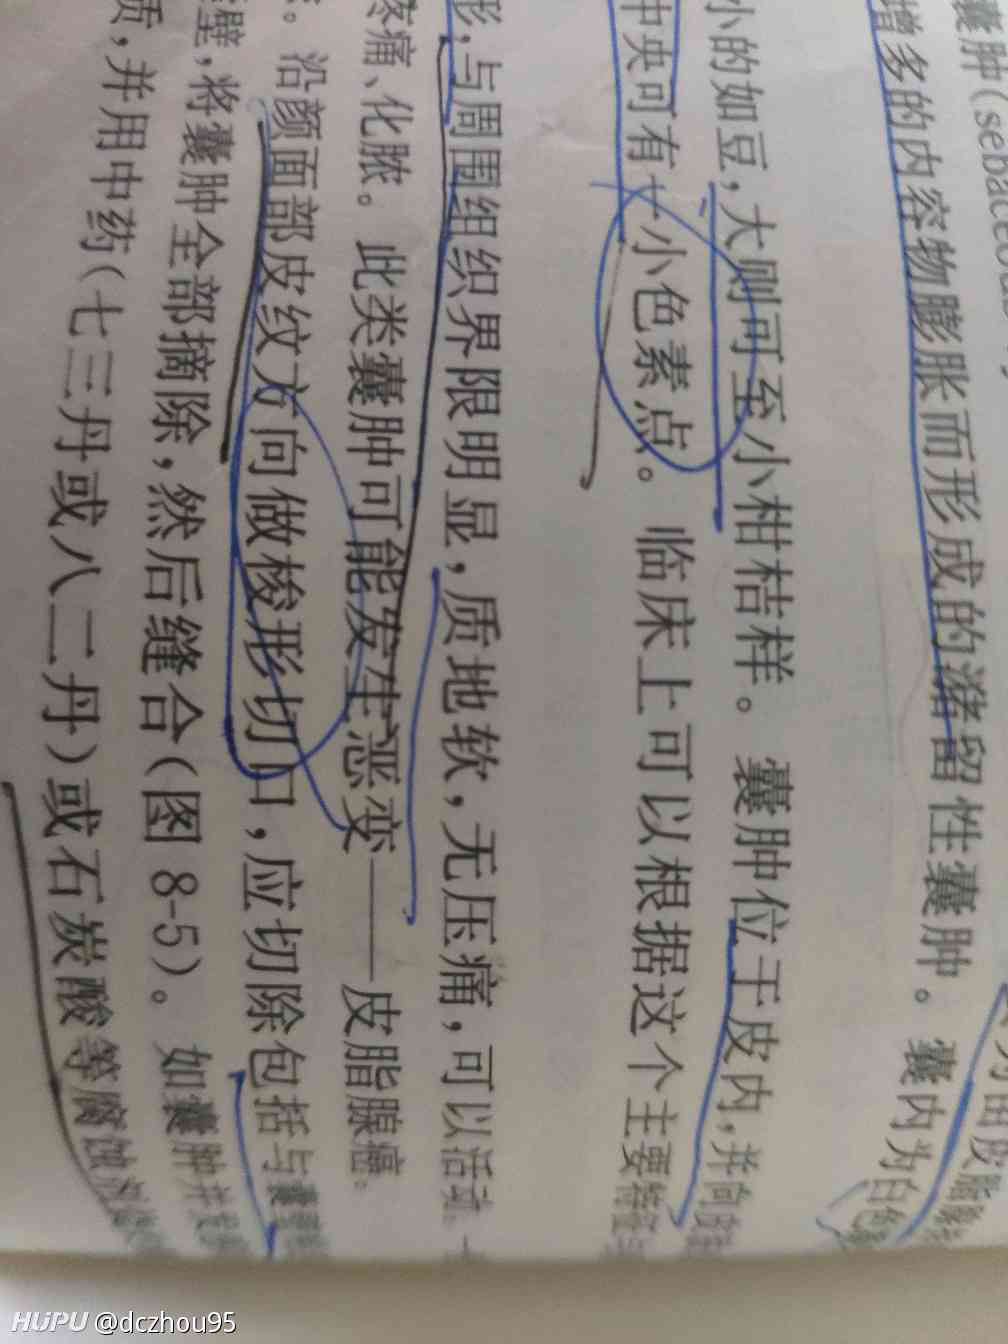 囊肿(sebaceou
增多的内容物膨胀而形成的潴留性囊肿。囊内为白色
小的如豆,大则可至小柑桔样。囊肿位于皮内,并向
中央可有一小色素点。临床上可以根据这个主要
形,与周围组织界限明显,质地软,无压痛,可以活动。
疼痛、化脓。此类囊肿可能发生恶变——皮脂腺癌。
沿颜面部皮纹方向做梭形切口,应切除包括与囊
壁,将囊肿全部摘除,然后缝合(图 8-5)。如囊肿并发
质,并用中药(七三丹或八二丹)或石炭酸等腐蚀
HUPU @dczhou95